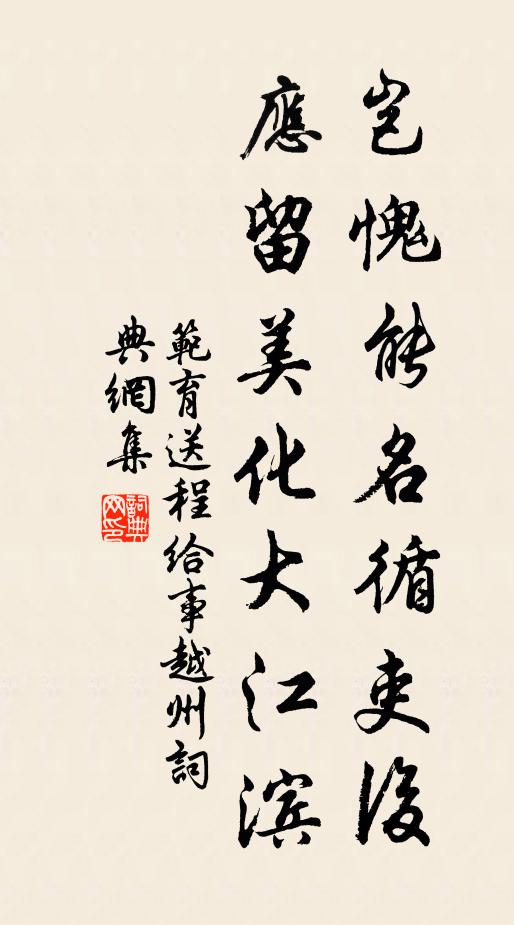 豈愧能名循吏後
應留美化大江滨
範育送程給事越州詞
典網集
詞典
网印